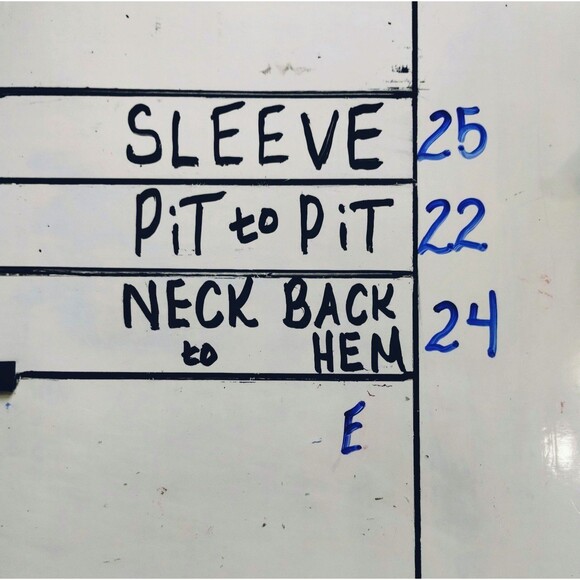 SLEEVE 25
PiT to PiT 22
NECK BACK
to HEM 24
E